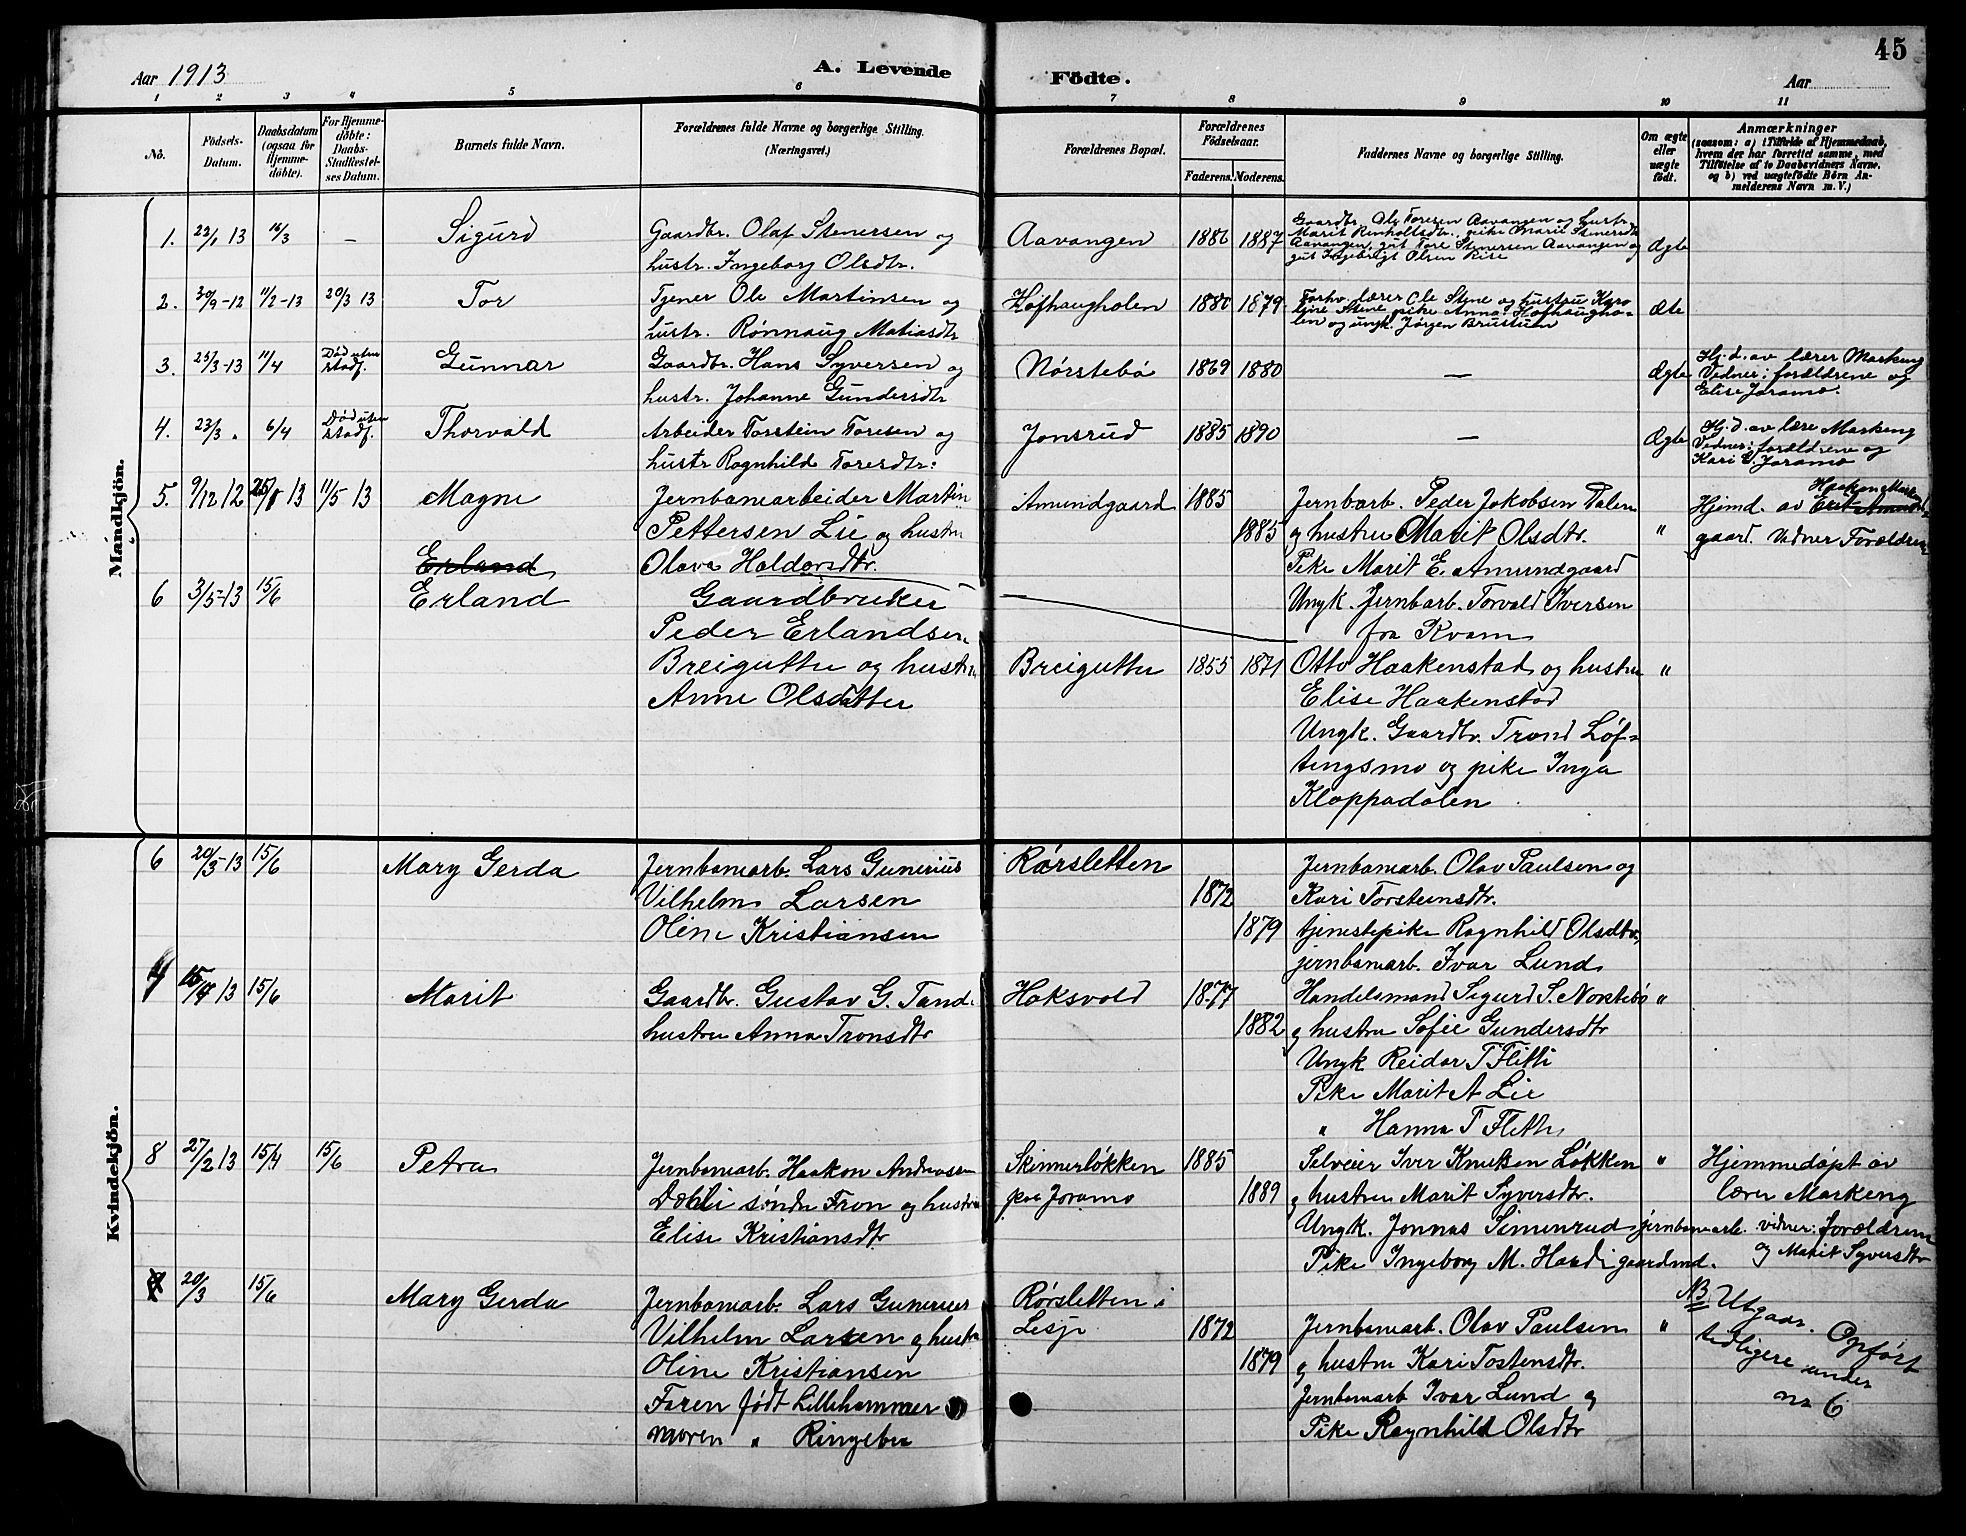 45
Aar 1913
A. Levende Födte.
Aar
1 2 3 4 5 6 7 8 9 10 11
No.
Födsels-Datum.
Daabsdatum (ogsaa for Hjemme-döbte).
For Hjemme-döbte: Daabs-Stadfæstel-ses Datum.
Barnets fulde Navn.
Forældrenes fulde Navne og borgerlige Stilling.
(Næringsvei.)
Forældrenes Bopæl.
Forældrenes Födselsaar.
Faderens. Moderens.
Faddernes Navne og borgerlige Stilling.
Om ægte eller uægte født.
Anmærkninger
(saasom: a) i Tilfælde af Hjemmedaab, hvem der har forrettet samme, med Tilföielse af to Daabsvidners Navne, og b) ved uægtefödte Börn An-melderens Navn m. V.)
Mandkjön.
1. 23/1 13 16/3 — Sigurd
Gaardbr. Olaf Stenersen og
hustr. Ingeborg Olsdtr.
Aavangen 1886 1887
Gaardbr. Ole Toresen Aavangen og hustr.
Marit Reinholtsdtr., pike Marit Stenersdtr
Aavangen, gut Tore Stenersen Aavangen og
gut Ingebrigt Olsen Rise
Ægte
2. 30/9-12 11/2-13 20/3 13 Tor
Tjener Ole Martinsen og
hustr. Rønnaug Matiasdtr
Hofhaugholen 1880 1879
Forhv. lærer Ole Stene og hustru Karo
line Stene, pike Anna Hofhaugho-
len og ungk. Jørgen Brustuen
Æte
3. 25/3-13 11/4 Död uten stadf. Gunnar
Gaardbr. Hans Syversen og
hustr. Johanne Gundersdtr
Nørstebö 1869 1880 — Ægte
Hj. d. av lærer Markeng
Vidner: forældrene og
Elise Joramo.
4. 23/3 " 6/4 Död uten stadf. Thorvald
Arbeider Torstein Toresen og
hustr Ragnhild Toresdtr.
Jonsrud 1885 1890 — Ægte
Hj. d. av lære Markeng
Vidner: forældrene og
Kari G. Joramo
5. 9/12 12 13 11/5 13 Magne
Jernbanearbeider Martin
Pettersen Lie og hustru
Olava Haldorsdtr.
Amundgaard 1885
1885
Jernbarb. Peder Jakobsen Dalen
og hustru Marit Olsdtr.
Pike Marit E. Amundgaard
Ungk. Jernbarb. Torvald Iversen
fra Kvam
"
Hjemd. av
gaard. Vidner Forældrene
Erland
6 3/5-13 15/6 Erland
Gaardbruker
Peder Erlandsen
Breigutu og hustru
Anne Olsdatter
Breigutu 1855 1871
Otto Haakenstad og hustru
Elise Haakenstad
Ungk. Gaardbr. Trond Løf-
tingsmo og pike Inga
Kloppadalen
"
Kvindekjön.
6 20/3-13 15/6 Mary Gerda
Jernbanearb. Lars Gunerius
Vilhelm Larsen
Oline Kristiansen
Rørsletten
1872
1879
Jernbanearb. Olav Paulsen og
Kari Torsteinsdtr.
tjenestepike Ragnhild Olsdtr,
jernbanearb. Ivar Lund
13 15/6 Marit
Gaardbr. Gustav G. Tand-
hustru Anna Tronsdtr
Hoksvold 1877
1882
Handelsmand Sigurd S. Norstebø
og hustru Sofie Gundersdtr
Ungk Reidar T Flitti
Pike Marit A Lie
" Hanna T Flitti
"
8 27/2 13 15/4 15/6 Petra
Jernbanearb. Haakon Andreassen
Dæhli søndre Fron og hustru
Elise Kristiansdtr
Skinnerløkken
paa Joramo
1885
1889
Selveier Iver Knutsen Løkken
og hustru Marit Syversdtr.
Ungk. Jonnas Simenrud jernbanearb.
Pike Ingeborg M. gaardmd.
"
Hjemmedøpt av
lærer Markeng
vidner: forældrene
og Marit Syversdtr
20/3 15/6 Mary Gerda
Jernbanearb. Lars Gunerius
Vilhelm Larsen og hustru
Oline Kristiansen
Faren født Lillehammer
Moren " Ringebu
Rørsletten i
Lesje
1872
1879
Jernbanearb. Olav Paulsen
og hustru Kari Tostensdtr.
Jernbanearb Ivar Lund og
Pike Ragnhild Olsdtr
"
NB Utgaar. Opført
tidligere under
no 6